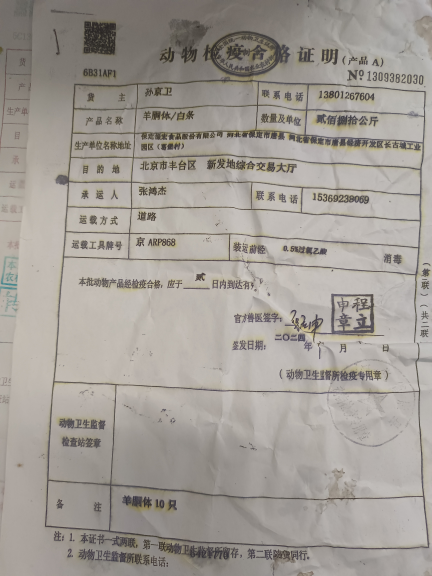 动物检疫合格证明(产品 A)
6B31AF1
№ 1309382030
货 主 孙京卫 联系电话 13801267604
产品名称 羊胴体/白条 数量及单位 贰佰捌拾公斤
生产单位名称地址 保定瑞宏食品股份有限公司 河北省保定市唐县 河北省保定市唐县经济开发区长古城工业园区（葛堡村）
目 的 地 北京市丰台区 新发地综合交易大厅
承 运 人 张鸿杰 联系电话 15369238069
运载方式 道路
运载工具牌号 京 ARP868 装运前经 0.5%过氧乙酸 消毒
本批动物产品经检疫合格，应于 贰 日内到达有
官方兽医签字：
程立申章
签发日期：二〇二四 年 月 日
（动物卫生监督所检疫专用章）
（第二联）（共二联）
动物卫生监督
检查站签章
备 注 羊胴体 10 只
注：1. 本证书一式两联，第一联动物卫生监督所留存，第二联随货同行。
2. 动物卫生监督所联系电话：